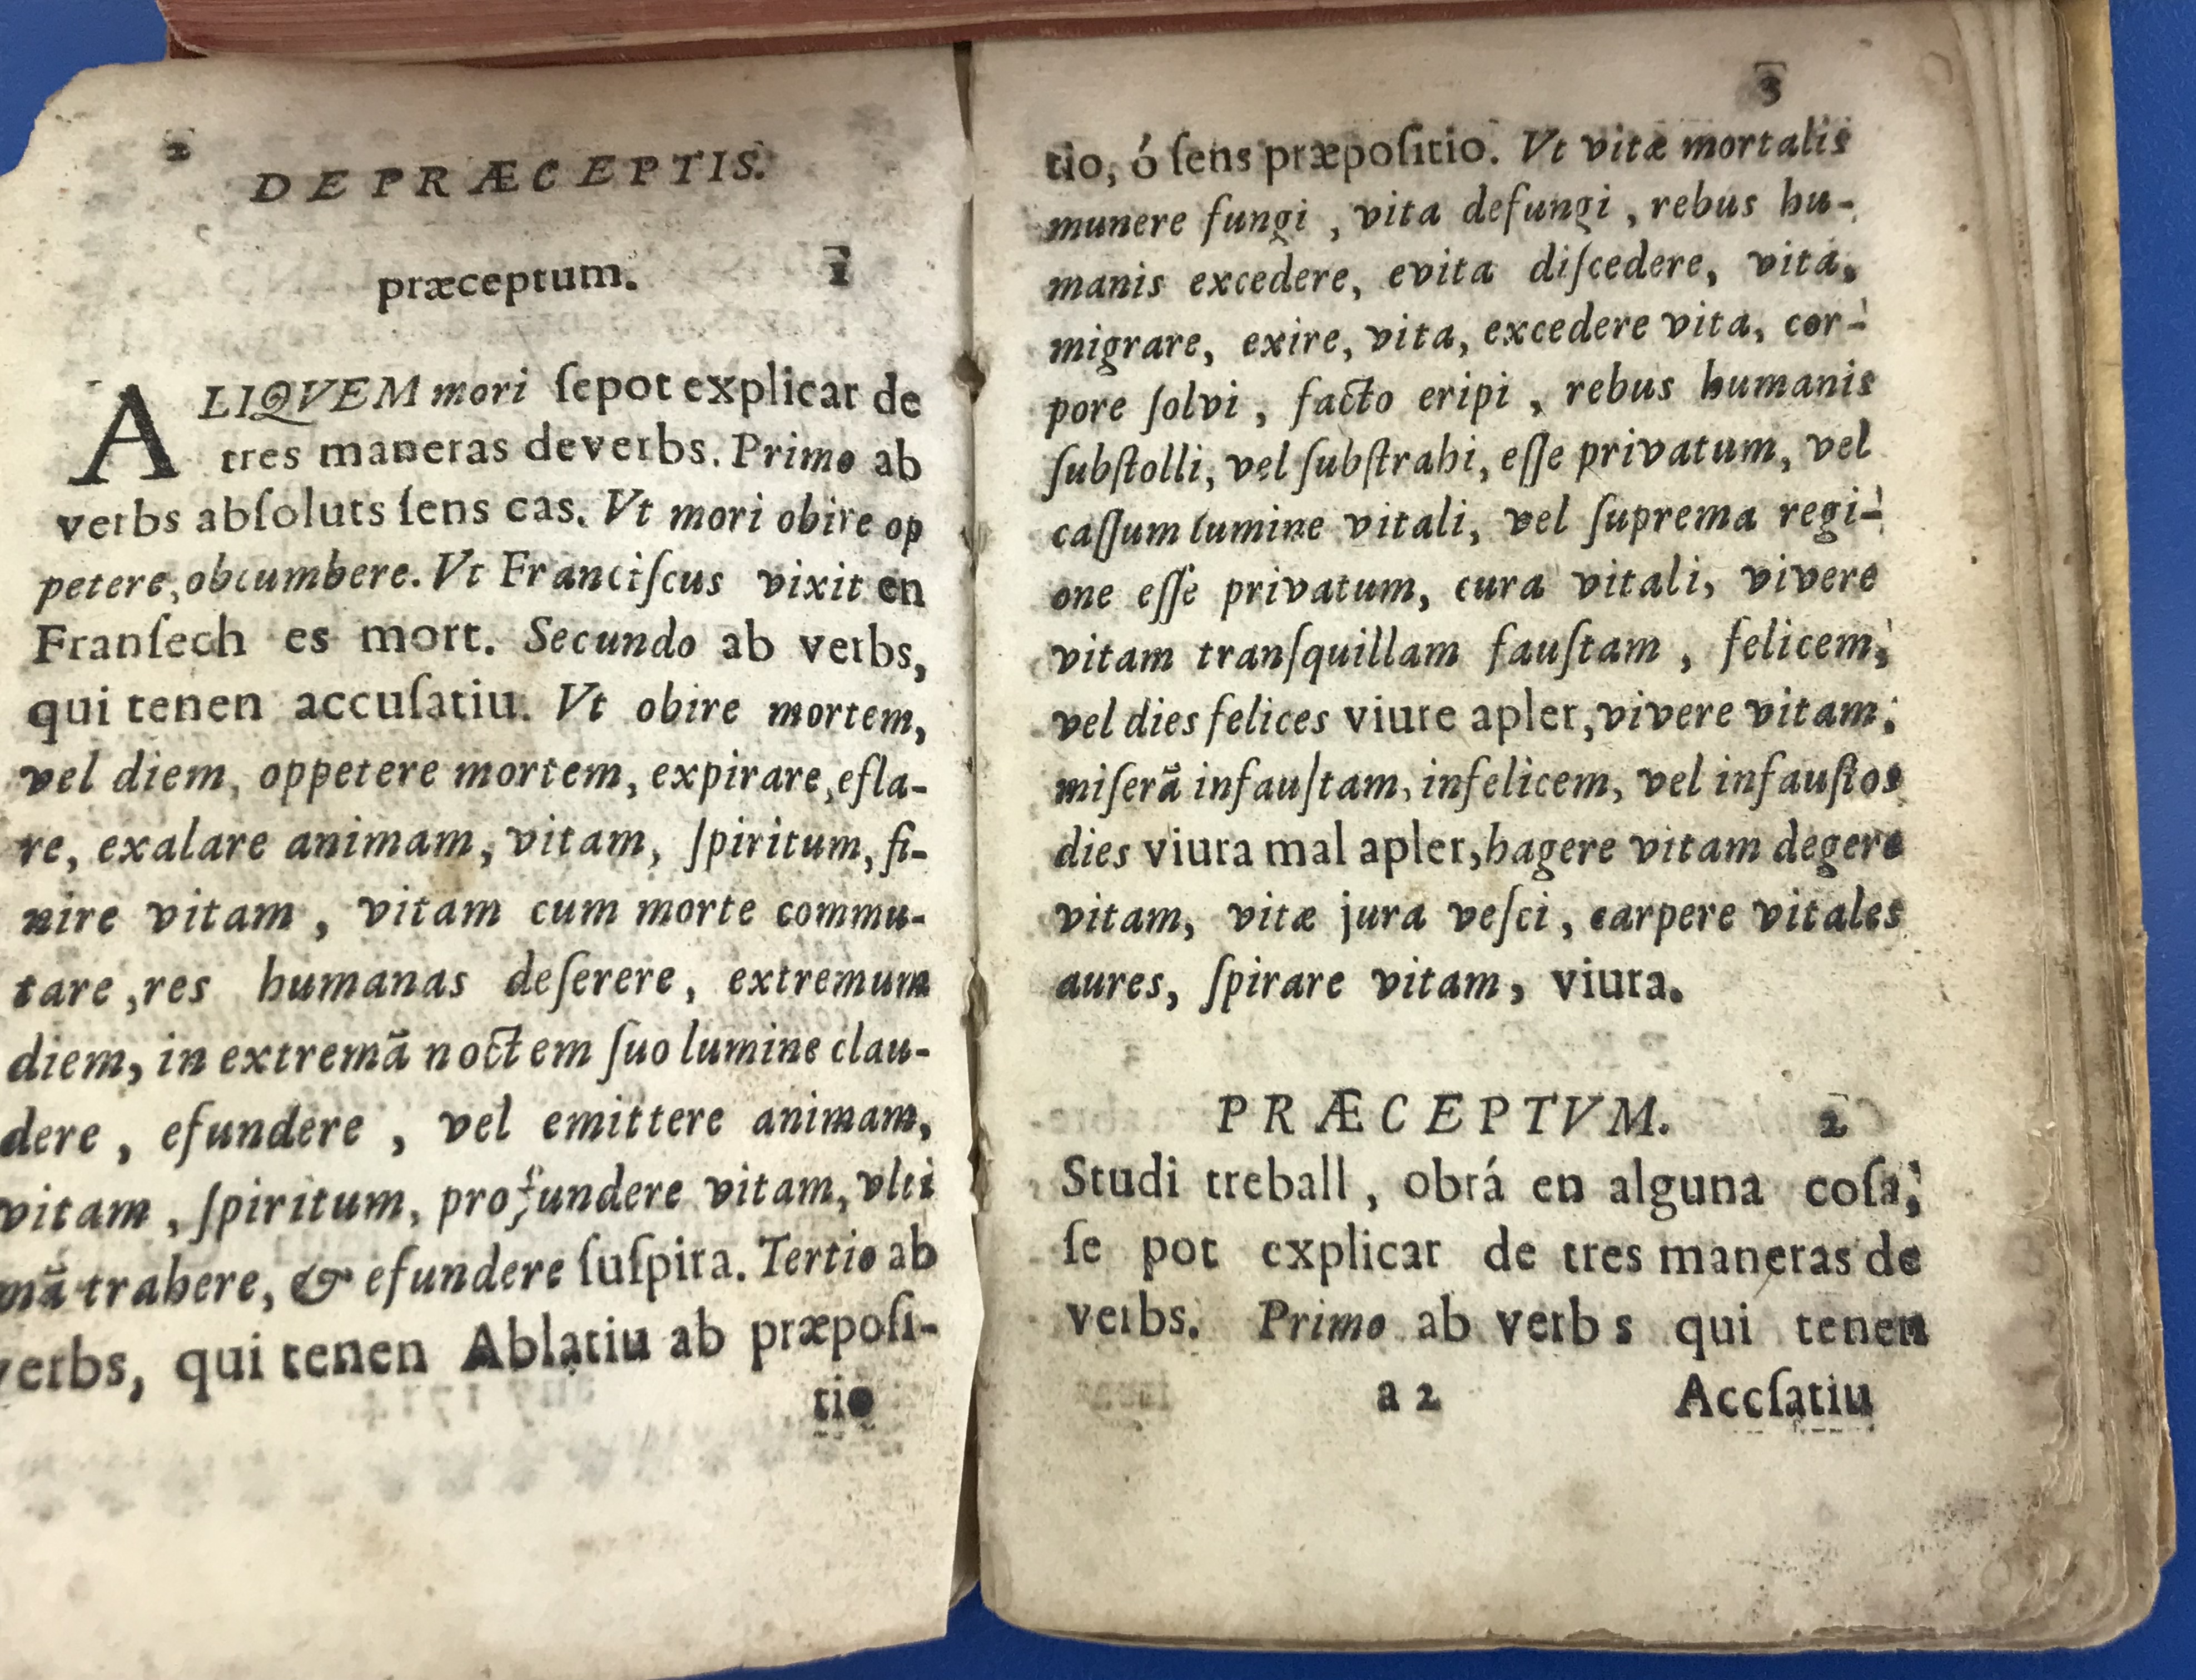 2
DE PRÆCEPTIS.
præceptum. 1
ALIQVEM mori ſepot explicar de
tres maneras deverbs. Primo ab
verbs abſoluts ſens cas. Vt mori obire op
petere, obcumbere. Vt Franciſcus vixit en
Franſech es mort. Secundo ab verbs,
qui tenen accuſatiu. Vt obire mortem,
vel diem, oppetere mortem, expirare, efla-
re, exalare animam, vitam, ſpiritum, fi-
nire vitam, vitam cum morte commu-
tare, res humanas deſerere, extremum
diem, in extremã noctem ſuo lumine clau-
dere, efundere, vel emittere animam,
vitam, ſpiritum, profundere vitam, vlti
mã trahere, & efundere ſuſpira. Tertio ab
verbs, qui tenen Ablatiu ab præpoſi-
tio
3
tio, ó ſens præpoſitio. Vt vitæ mortalis
munere fungi, vita defungi, rebus hu-
manis excedere, evita diſcedere, vita,
migrare, exire, vita, excedere vita, cor-
pore ſolvi, facto eripi, rebus humanis
ſubſtolli, vel ſubſtrahi, eſſe privatum, vel
caſſum lumine vitali, vel ſuprema regi-
one eſſe privatum, cura vitali, vivere
vitam tranſquillam fauſtam, felicem,
vel dies felices viure apler, vivere vitam,
miſerã infauſtam, infelicem, vel infauſtos
dies viura mal apler, hagere vitam degere
vitam, vitæ jura veſci, carpere vitales
aures, ſpirare vitam, viura.
PRÆCEPTVM. 2
Studi treball, obrá en alguna coſa,
ſe pot explicar de tres maneras de
verbs. Primo ab verbs qui tenen
a 2 Accſatiu